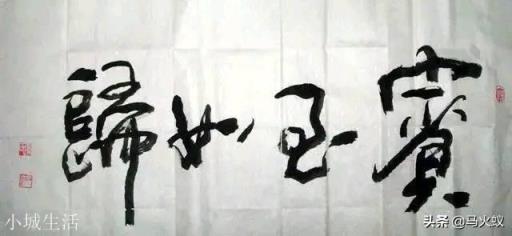 賓至如歸
小城生活
头条 @马火蚁